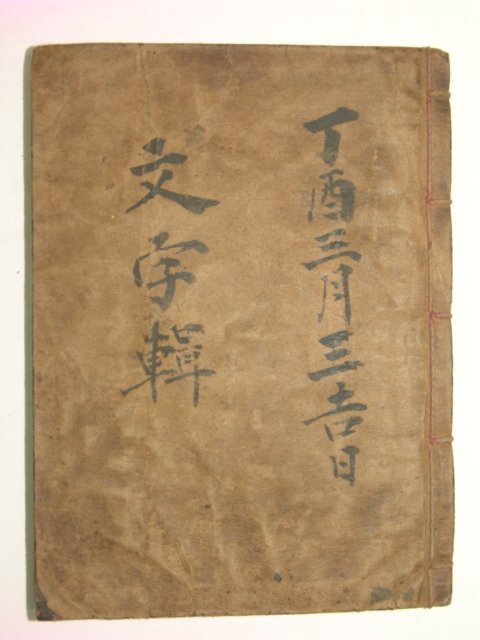 丁酉三月三吉日
文字輯